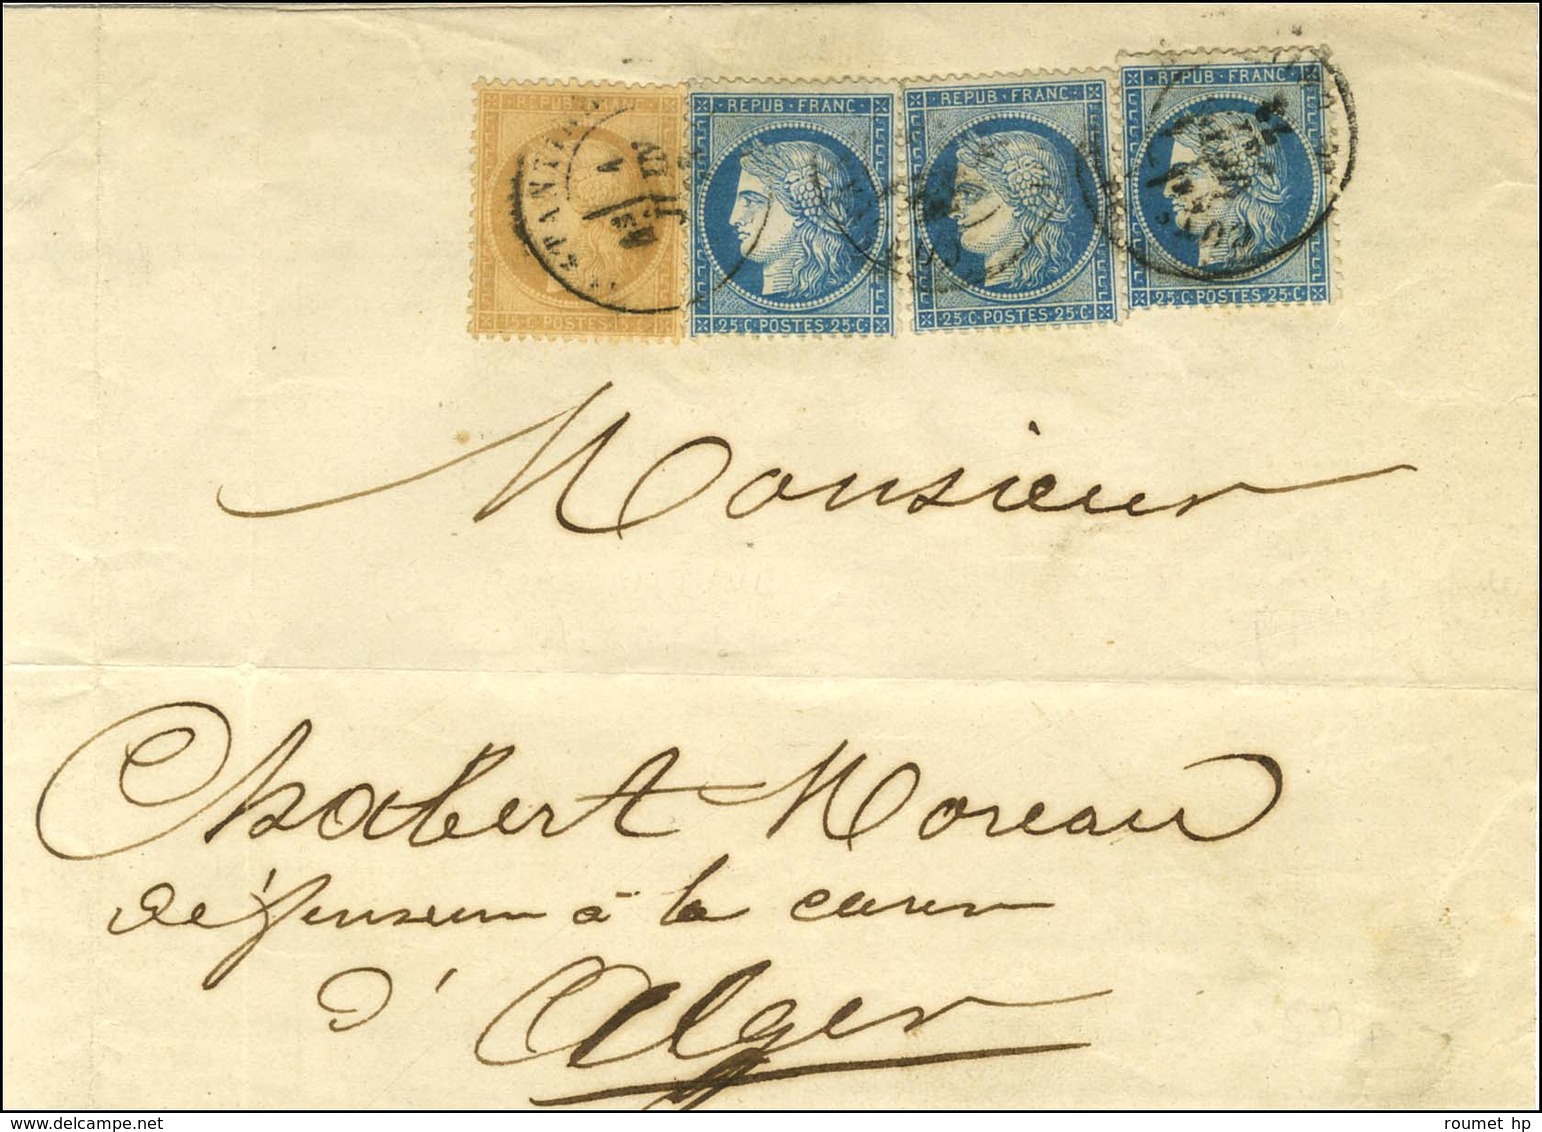 REPUB · FRANC
REPUB · FRANC
REPUB · FRANC
REPUB · FRANC
15·C·POSTES·15·C
25·C·POSTES·25·C
25·C·POSTES·25·C
25·C·POSTES·25·C
Monsieur
Chabert-Moreau
défenseur à la cour
d'Alger
www.delcampe.net
roumet hp